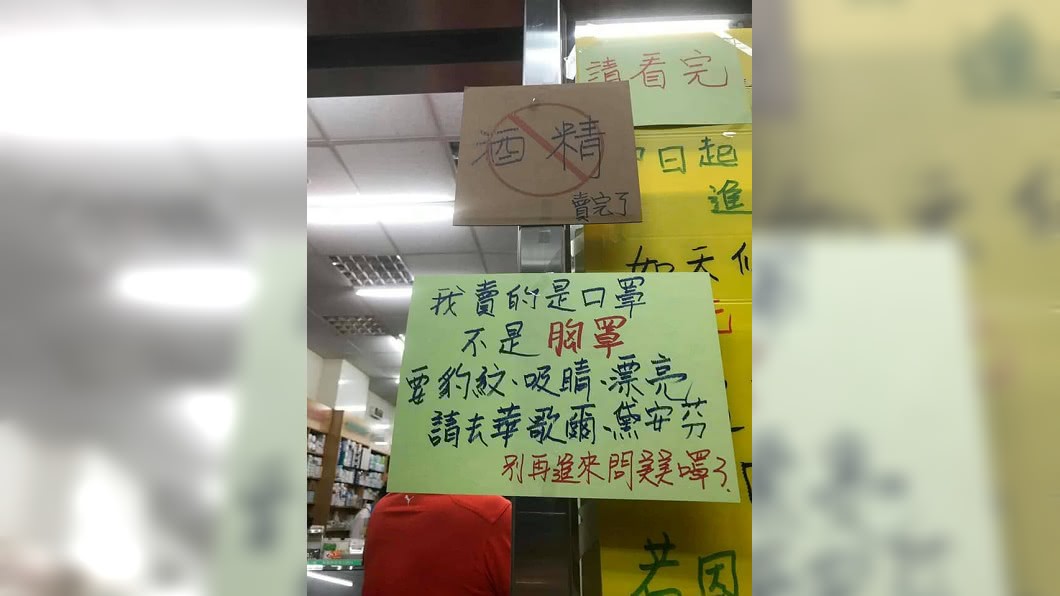 請看完
酒精
賣完了
日起
進
如天
我賣的是口罩
不是胸罩
要豹紋、吸睛、漂亮
請去華歌爾、黛安芬
別再進來問美美噿了.
若因